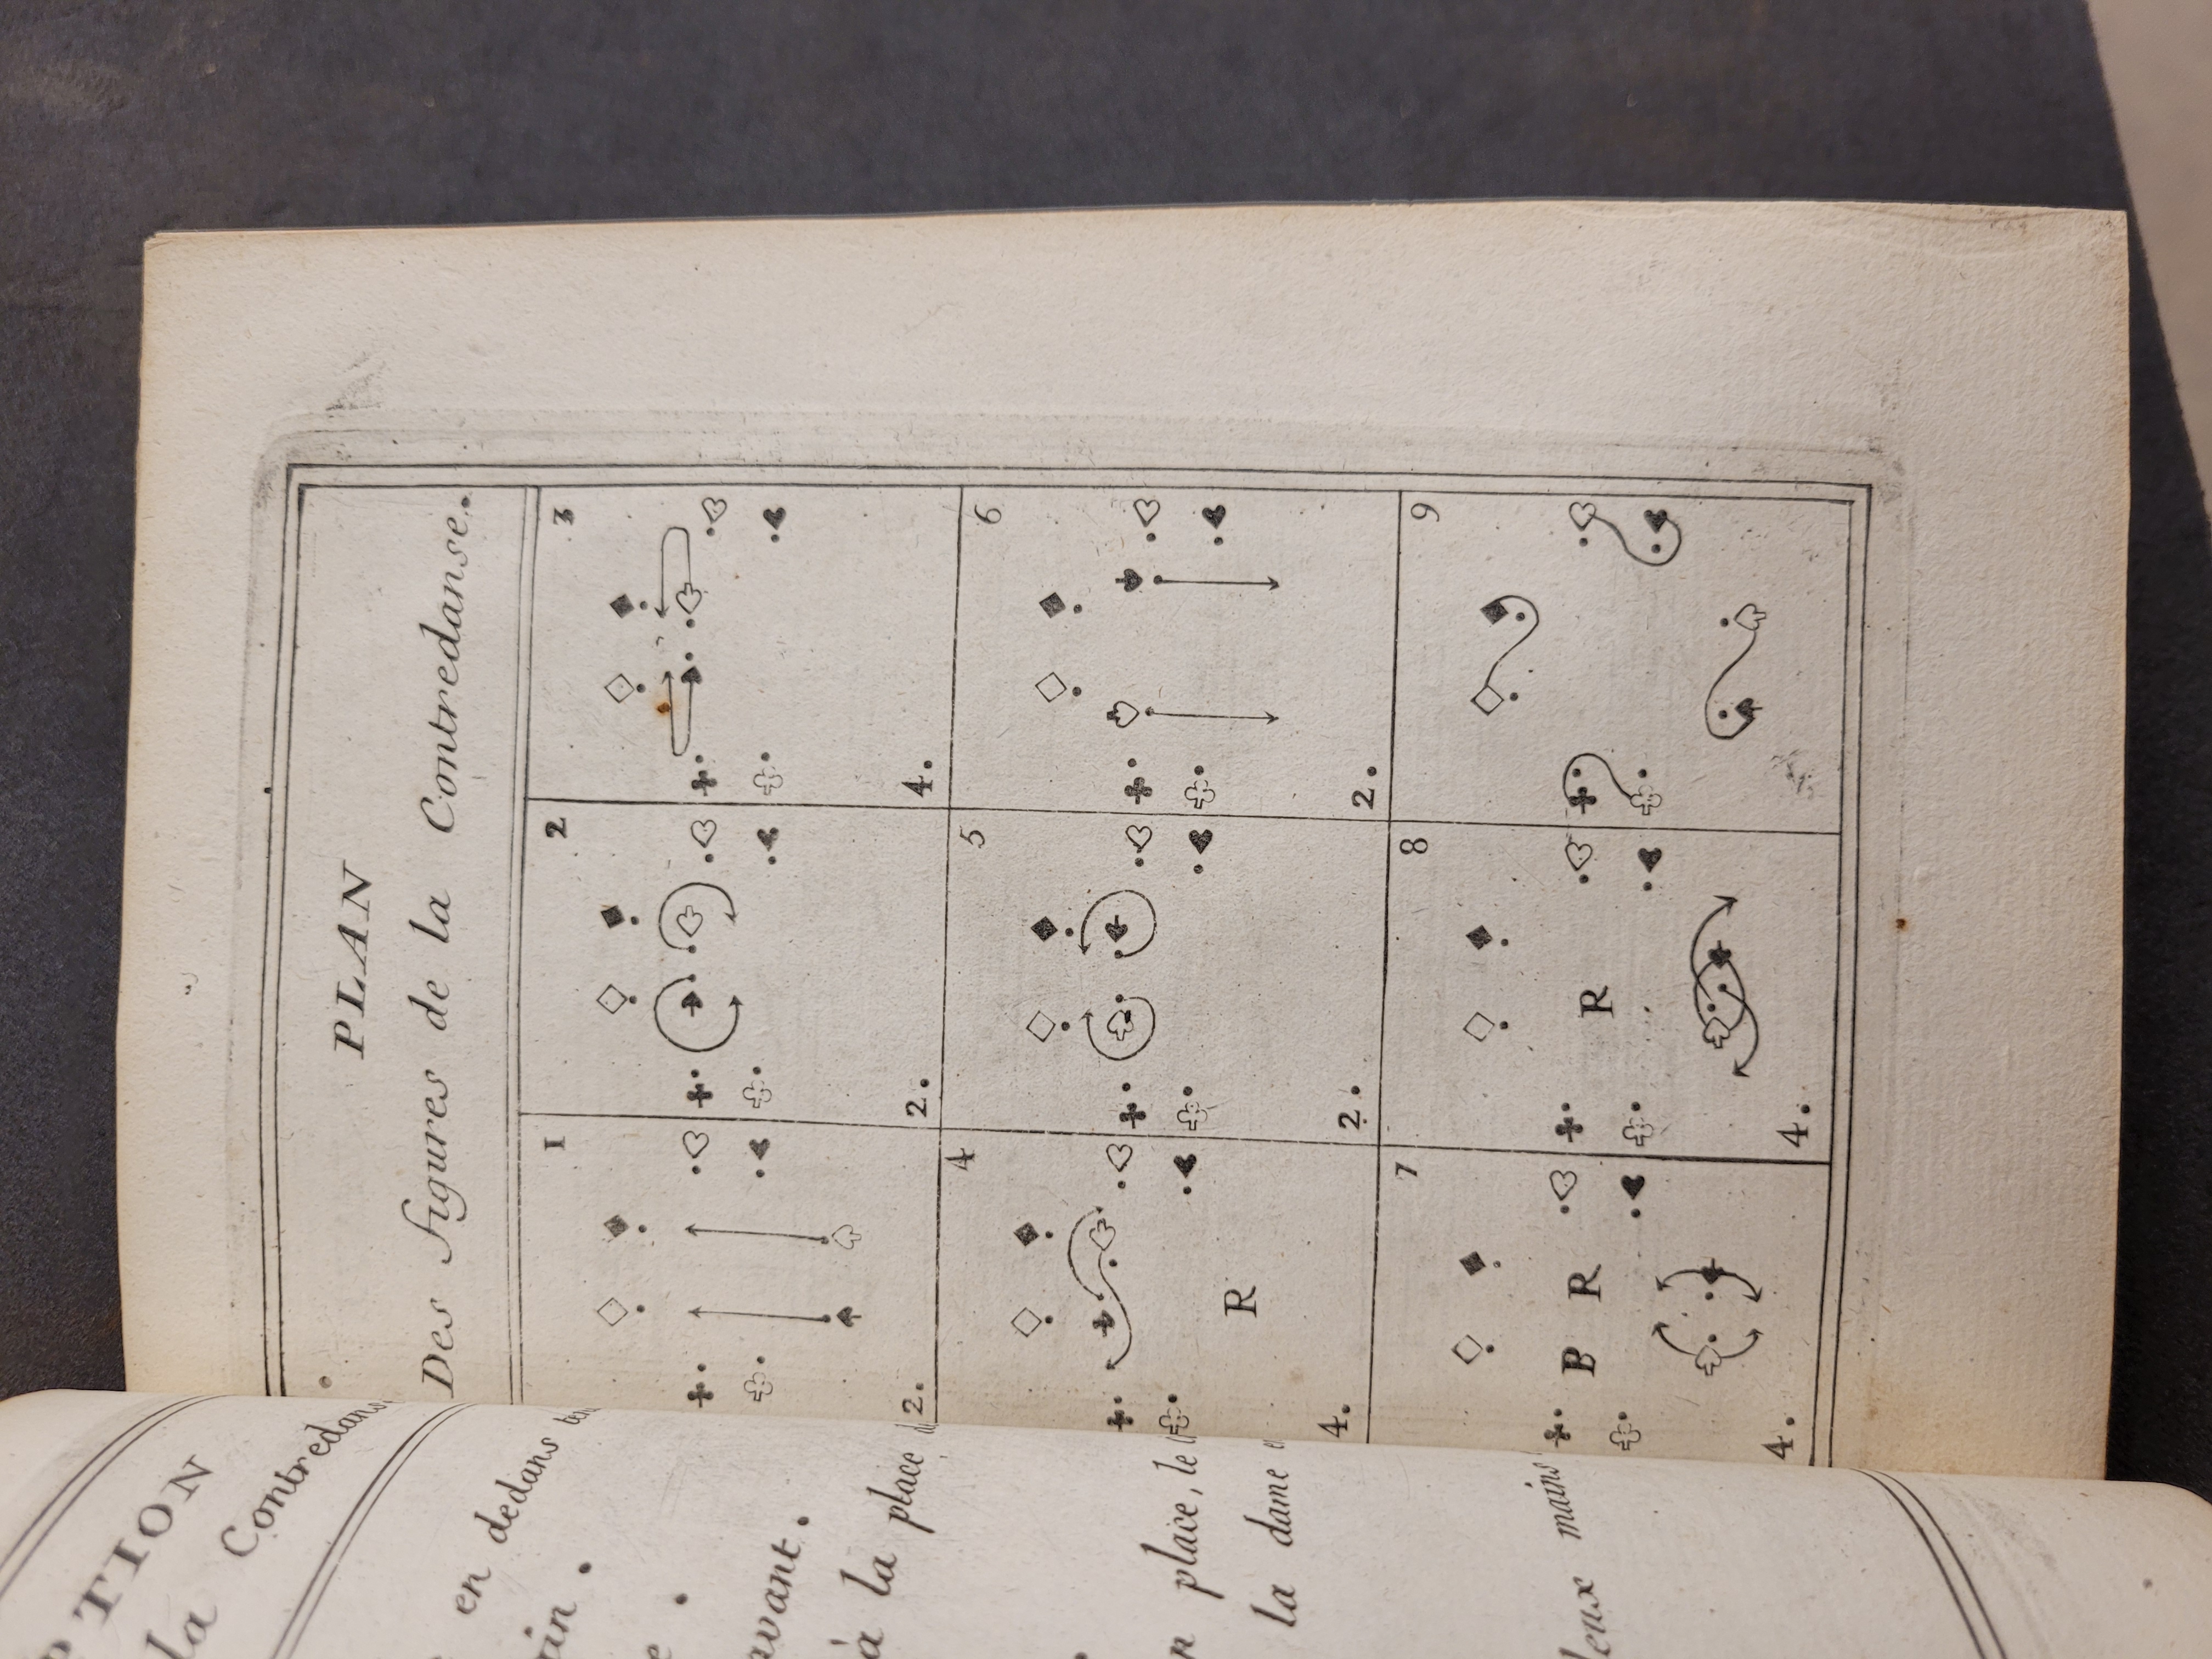 PLAN
Des figures de la Contredanse.
1
2.
2
2.
3
4.
4
R
4.
5
2.
6
2.
7
B R
4.
8
R
4.
9
PTION
la Contredans
en dedans
ain.
e.
avant.
à la place
place, le
la dame
deux mains